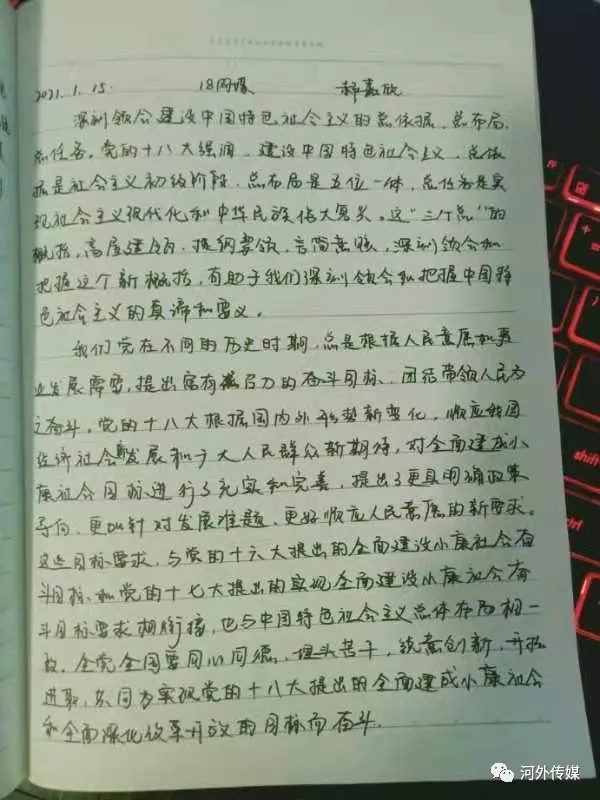 2021.1.15. 18网媒 郝嘉欣
深刻领会建设中国特色社会主义的总依据、总布局、
总任务。党的十八大强调，建设中国特色社会主义，总依
据是社会主义初级阶段，总布局是五位一体，总任务是实
现社会主义现代化和中华民族伟大复兴。这"三个总"的
概括，高屋建瓴、提纲挈领、言简意赅，深刻领会和
把握这个新概括，有助于我们深刻领会和把握中国特
色社会主义的真谛和要义。
我们党在不同的历史时期，总是根据人民意愿和事
业发展需要，提出富有感召力的奋斗目标，团结带领人民为
之奋斗。党的十八大根据国内外形势新变化，顺应我国
经济社会新发展和广大人民群众新期待，对全面建成小
康社会目标进行了充实和完善，提出了更具明确政策
导向、更加针对发展难题、更好顺应人民意愿的新要求。
这些目标要求，与党的十六大提出的全面建设小康社会奋
斗目标和党的十七大提出的实现全面建设小康社会奋
斗目标要求相衔接，也与中国特色社会主义总体布局相一
致。全党全国要同心同德、埋头苦干，锐意创新、开拓
进取，共同为实现党的十八大提出的全面建成小康社会
和全面深化改革开放的目标而奋斗。
河外传媒